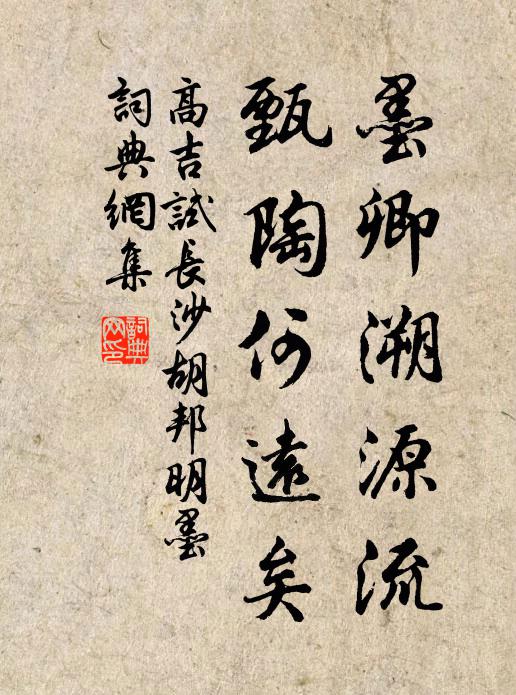 墨卿溯源流
甄陶何遠矣
高吉試長沙胡邦明墨
詞典網集
詞典網印